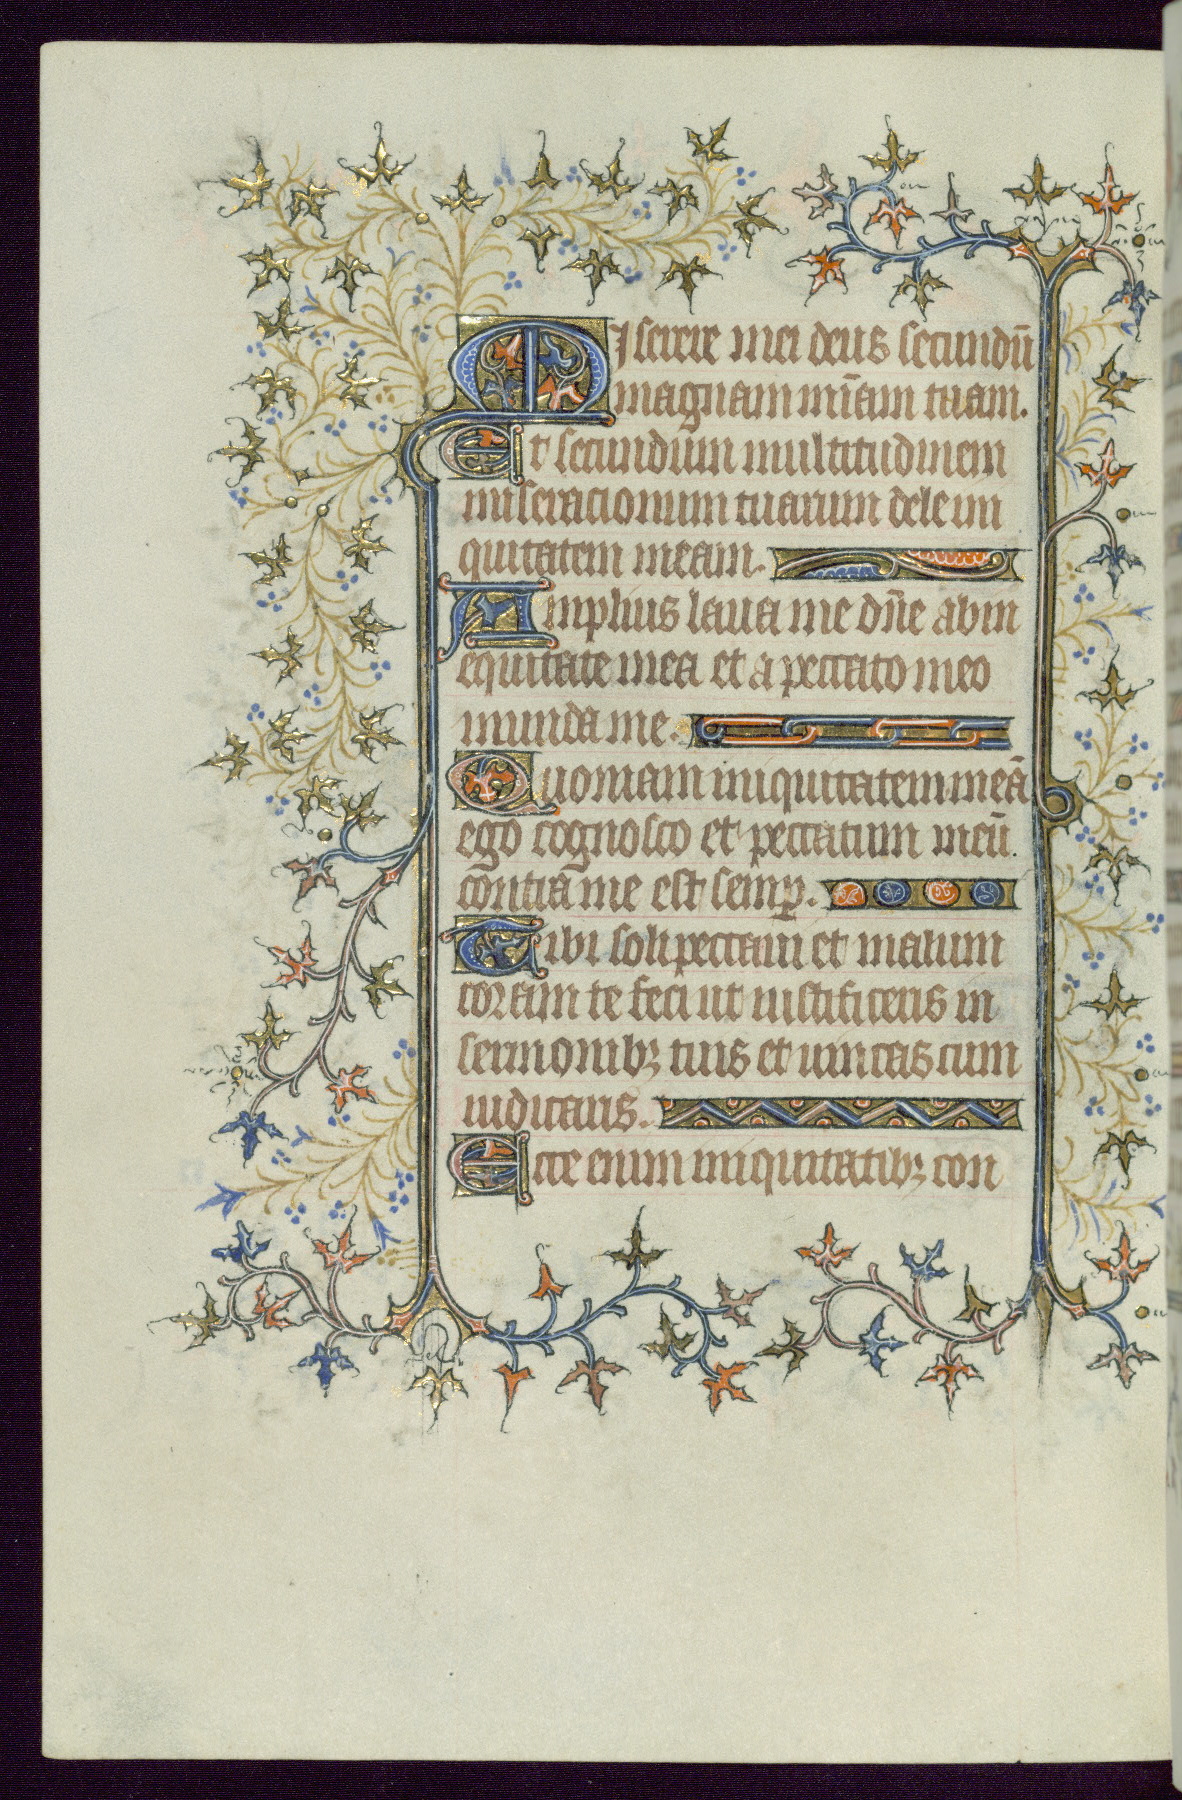 Miserere mei deus secundū
magnam mīam tuam.
Et secundum multitudinem
miseracionum tuarum dele ini
quitatem meam.
Amplius laua me dn̄e ab in
equitate mea et a peccato meo
munda me.
Quoniam iniquitatem meā
ego cognosco et peccatum meū
contra me est semꝑ.
Tibi soli peccaui et malum
coram te feci ut iustificeris in
sermonibꝫ tuis et uincas cum
iudicaris.
Ecce enim iniquitatibꝫ con